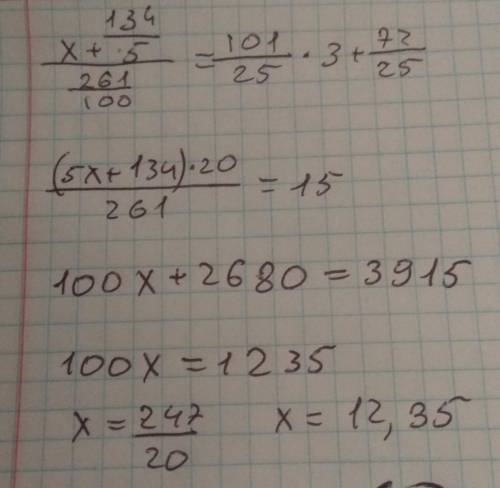 (x + 134/·5)/(261/100) = 101/25 · 3 + 72/25
(5x + 134) · 20 / 261 = 15
100x + 2680 = 3915
100x = 1235
x = 247/20   x = 12,35